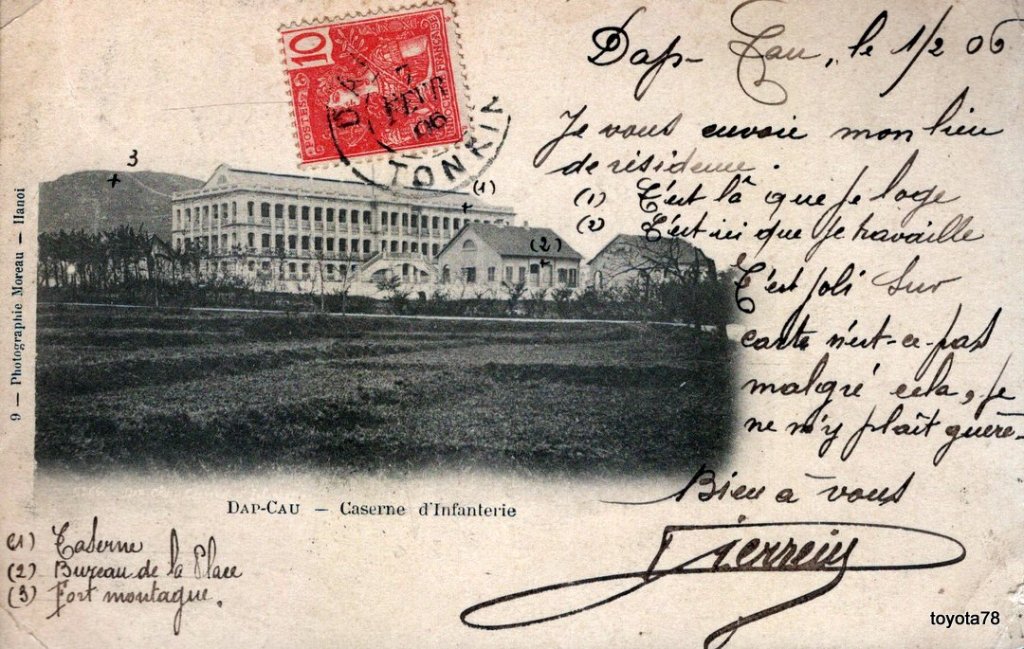 10
POSTES
FRANÇAISE
3
FEVR
06
TONKIN
Dap-Cau, le 1/2 06
Je vous envoie mon lieu
de résidence.
(1) C'est là que je loge
(2) C'est ici que je travaille
C'est joli sur
carte n'est-ce-pas
malgré cela, je
ne m'y plaît guère-
Bien à vous
3
(1)
(2)
9 — Photographie Moreau — Hanoi
DAP-CAU — Caserne d'Infanterie
(1) Caserne
(2) Bureau de la Place
(3) Fort montagne.
toyota78